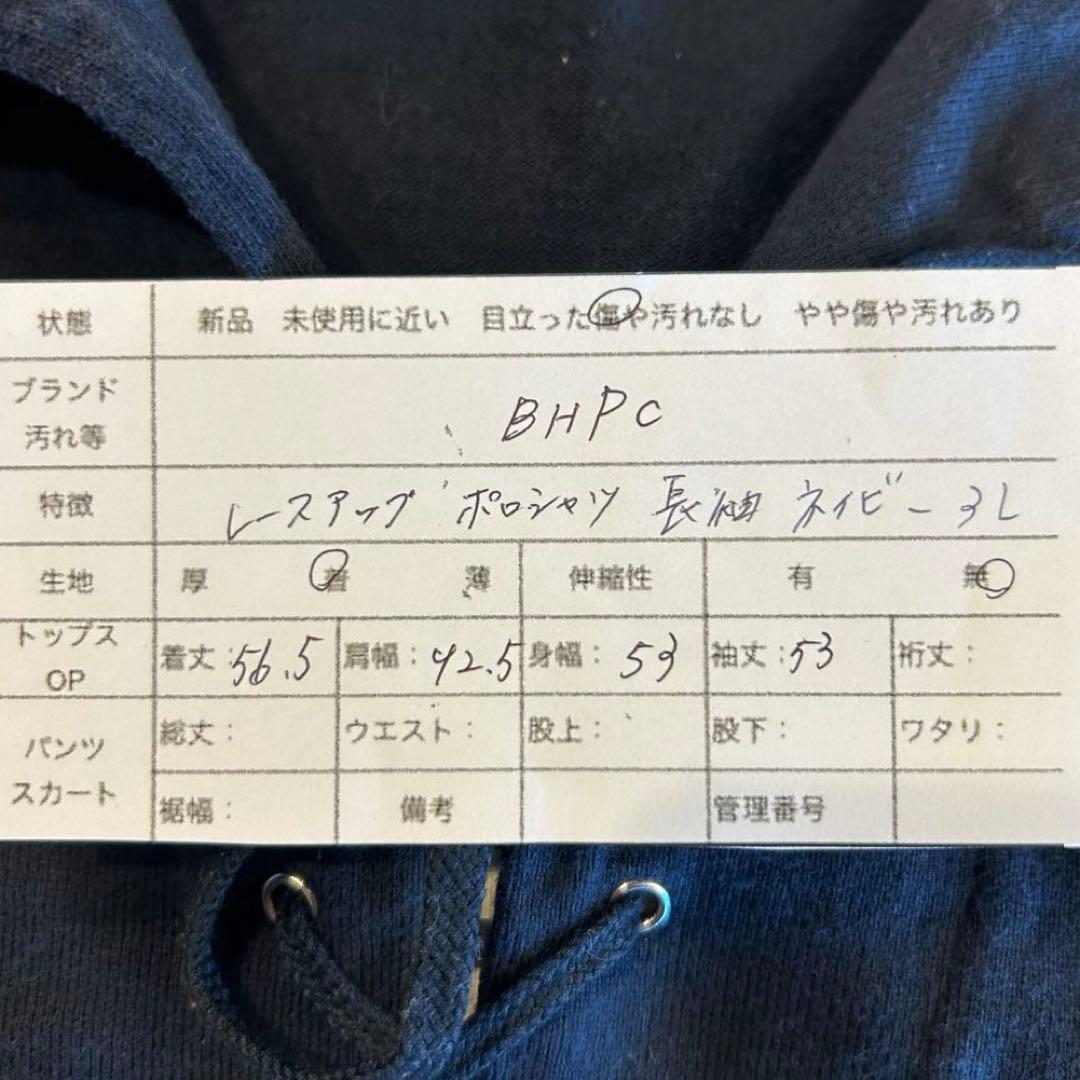 状態 新品 未使用に近い 目立った傷や汚れなし やや傷や汚れあり
ブランド
汚れ等 BHPC
特徴 レースアップ ポロシャツ 長袖 ネイビー 3L
生地 厚 着 薄 伸縮性 有 無
トップス
OP 着丈:56.5 肩幅:42.5 身幅:53 袖丈:53 裄丈:
パンツ
スカート
総丈: ウエスト: 股上: 股下: ワタリ:
裾幅: 備考 管理番号